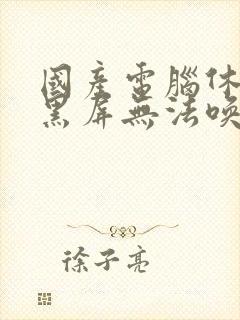 國産電腦休
黑屏無法喚
徐子亮